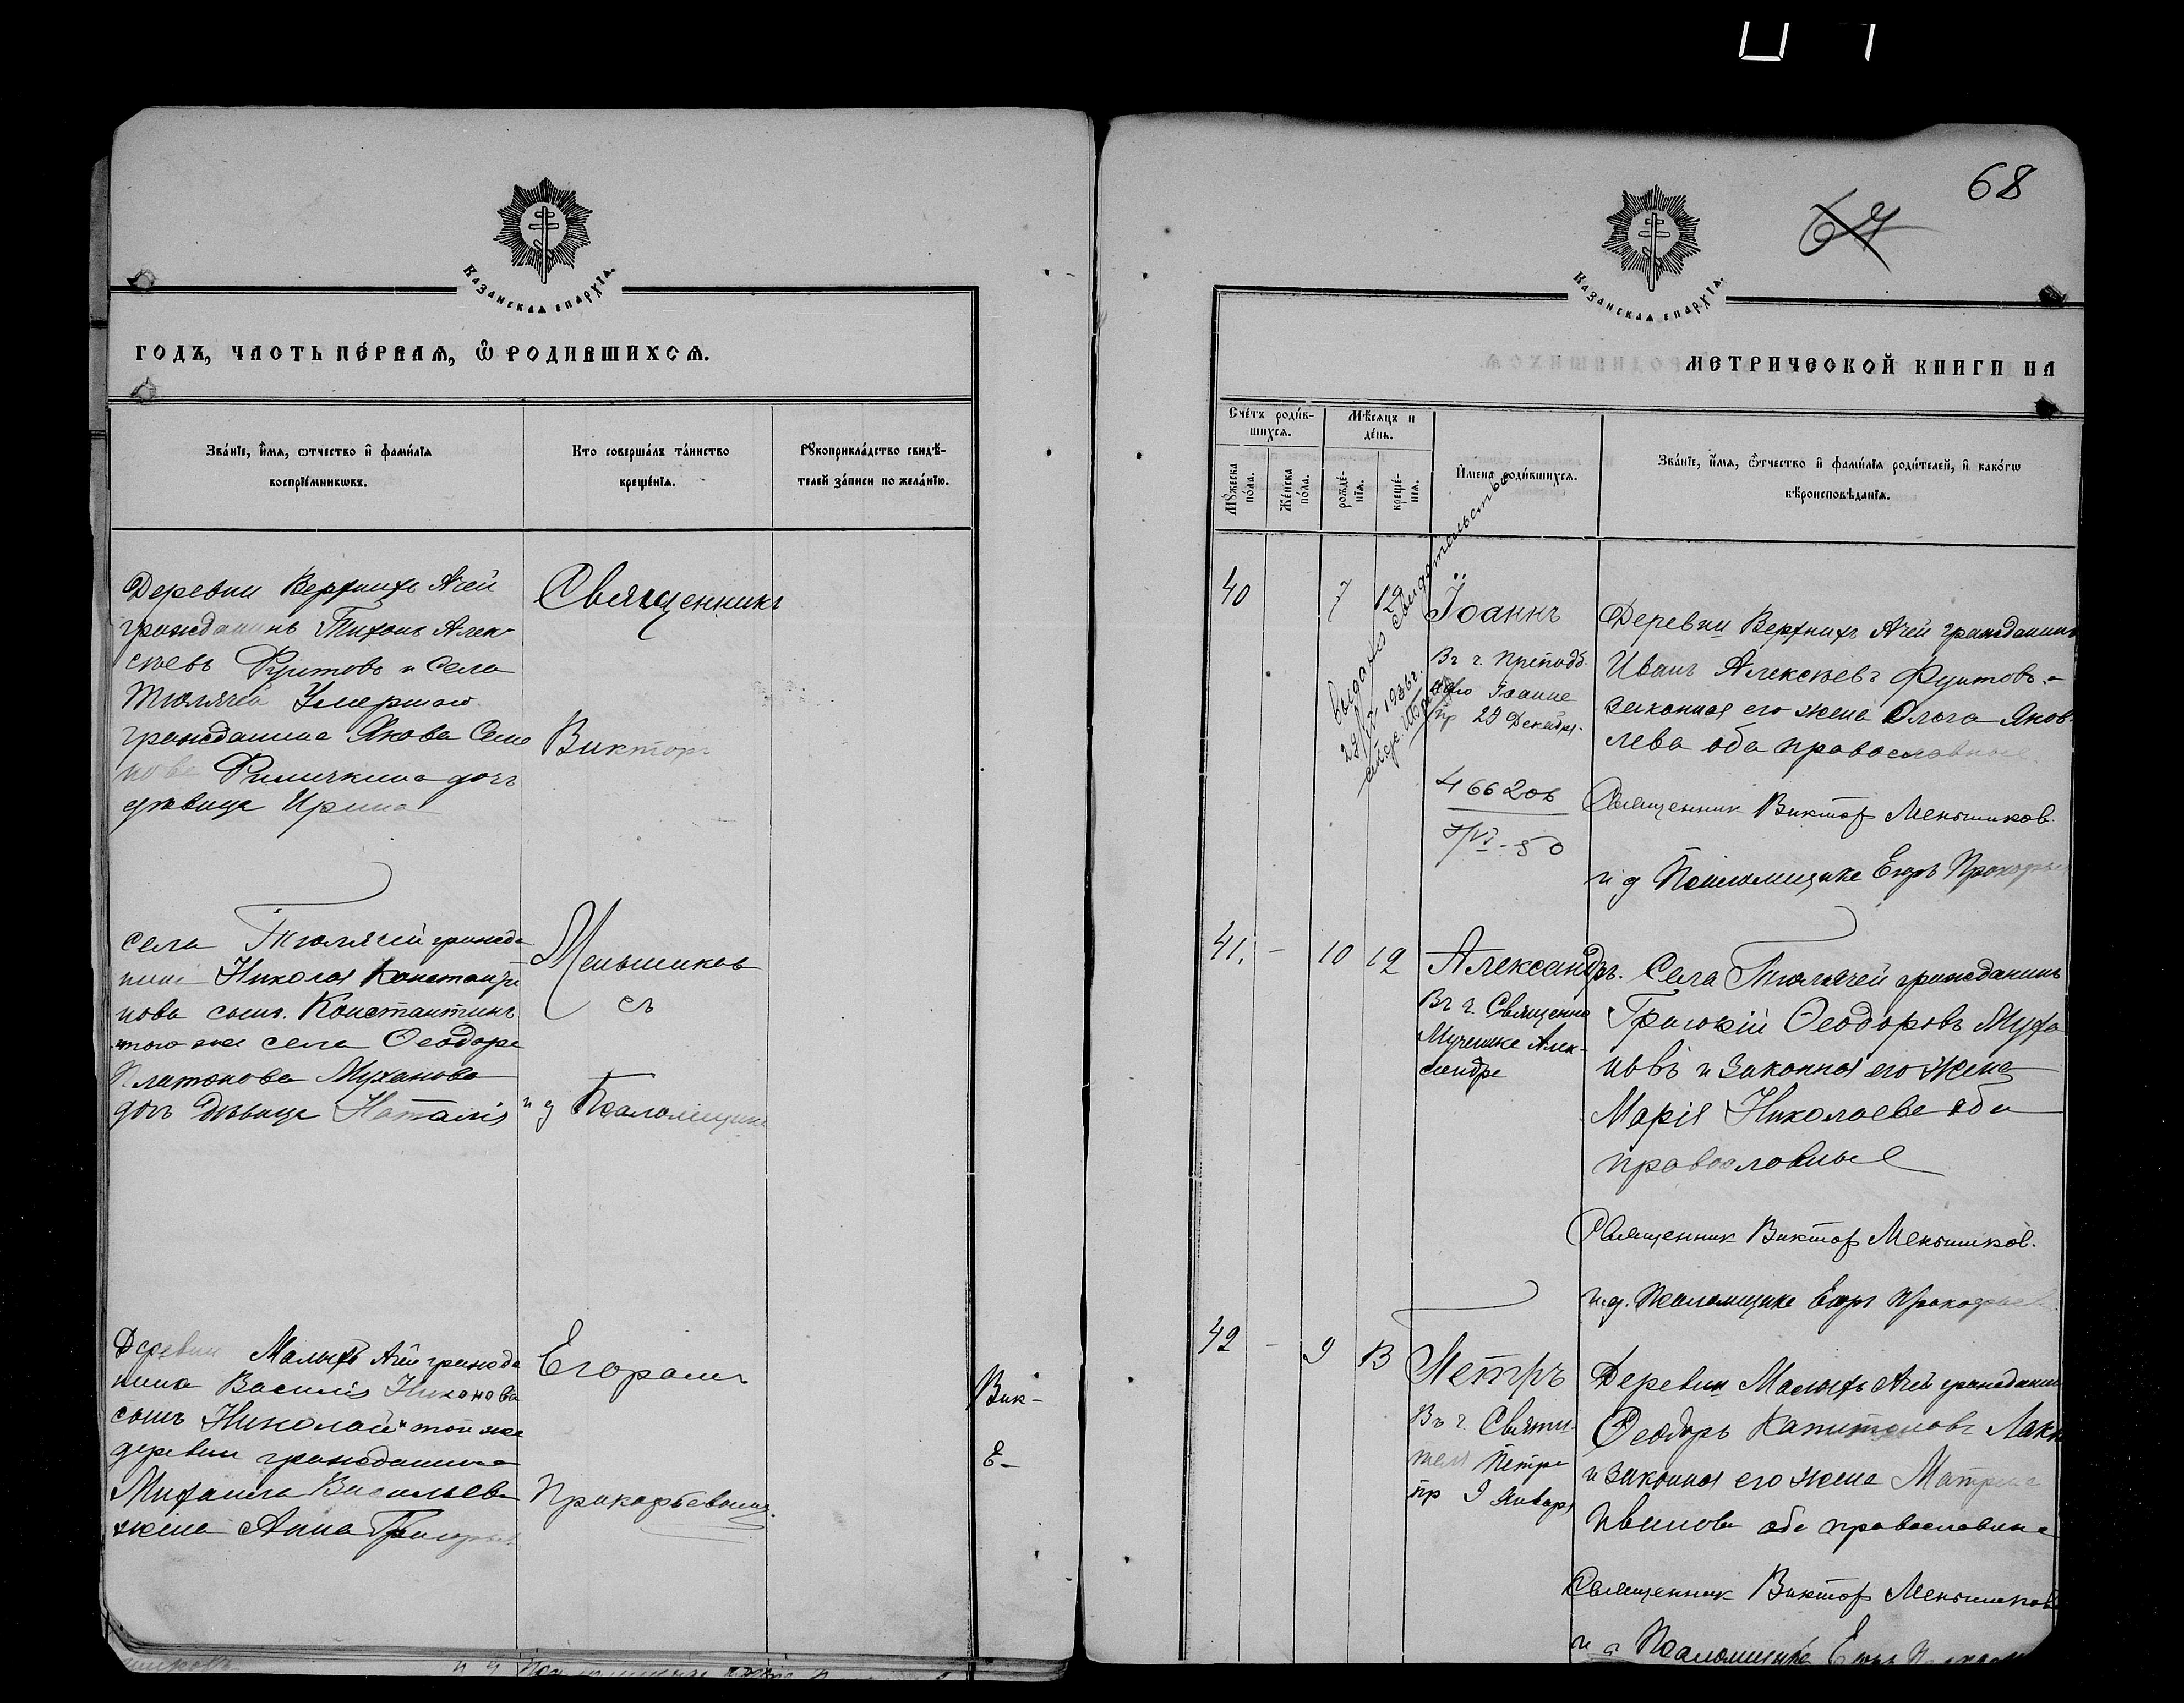 Казанская епархїа.
ГОДЪ, ЧАСТЬ ПЕ́РВАѦ, Ѡ҃ РОДИВШИХСѦ.
Зва́нїе, и҆́мѧ, ѻтчество и҆ фами́лїѧ
воспрїе́мникѡвъ.
Кто соверша́лъ та́инство
креще́нїѧ.
Рꙋкоприкла́дство свидѣ́-
телей за́писи по жела́нїю.
Деревни Верхнихъ Ачей
гражданинъ Тихонъ Алек-
сѣевъ Фунтовъ и Села
Тюлячей Умершаго
гражданина Якова Семе
нова дочъ
дѣвица Ирина
Священникъ
Викторъ
Села Тюлячей гражда
нина Николая Константи
нова сынъ. Константинъ
того же села Ѳеодора
Платонова Муханова
дочъ Дѣвица Наталія
Меньшиков
съ
и д Псаломщика
Деревни Малыхъ Ачей гражда
нина Василія Никонова
сынъ Николай и той же
деревни гражданина
Михаила Васильева
жена Анна Григорьев
Егоромъ
Прокофьевымъ
Вик-
Е-
68
67
Казанская епархїа.
МЕТРИЧЕСКОЙ КНИГИ НА
Сче́тъ роди́в-
шихсѧ.
Мѣ́сѧцъ и
де́нь.
Мꙋ́жеска
по́ла.
Же́нска
по́ла.
рожде́-
нїѧ.
креще́-
нїѧ.
И҆мена̀ роди́вшихсѧ.
Зва́нїе, и҆́мѧ, ѻ҆́тчество и҆ фами́лїѧ роди́телей, и҆ како́гѡ
вѣроисповѣ́данїѧ.
40
7
12
Выдано свидетельство
1936 г.
Іоаннъ
Въ ч. преподоб.
Іоанна
пр 29 Декабря.
466206
7/VI-50
Деревни Верхнихъ Ачей гражданинъ
Иванъ Алексѣевъ Фунтовъ. и
законная его жена Ольга Яков-
лева оба православные
Священник Виктор Меньшиков.
и д Псаломщика Егоръ Прокофьев
41.
-
10
12
Александръ.
Въ ч. Священно
Мученика Алек-
сандра
Села Тюлячей гражданинъ
Григорій Ѳеодоровъ Муха
новъ и законная его жена
Марія Николаева оба
православные
Священник Виктор Меньшиков.
и.д. Псаломщика Егоръ Прокофьев
42
-
9
13
Петръ
Въ ч. Святи-
теля Петра
пр 9 Января
Деревни Малыхъ Ачей гражданин
Ѳеодоръ Капитоновъ
и законная его жена Матрена
Иванова оба православные
Священник Виктор Меньшиков
и д Псаломщика Егоръ